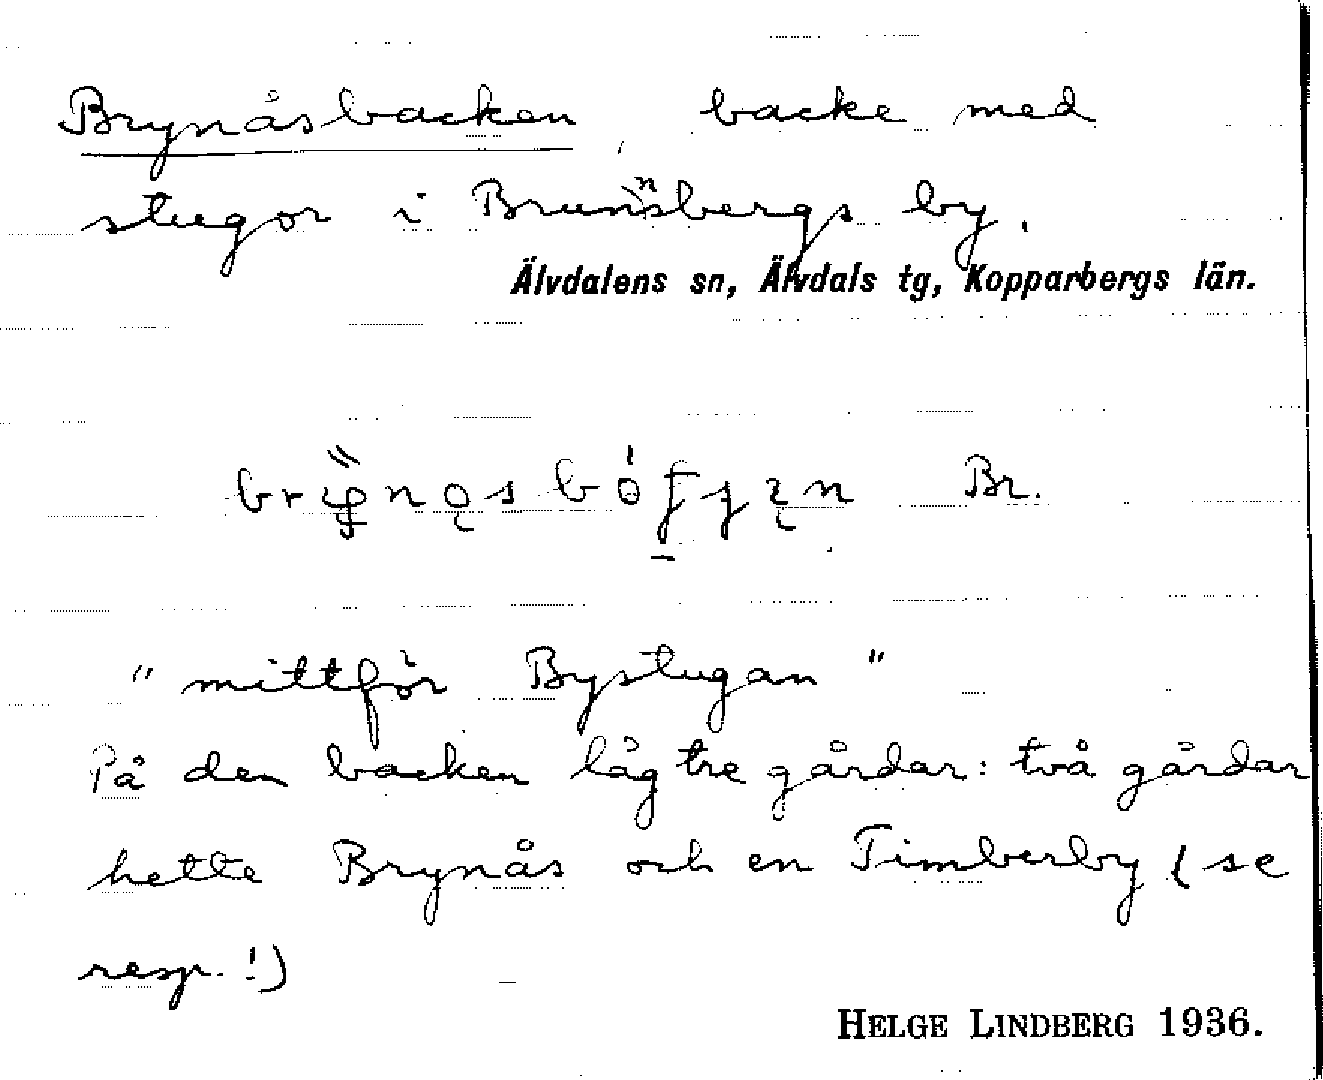 Brynåsbacken, backe med
stugor i Brunnsbergs by.
Älvdalens sn, Älvdals tg, Kopparbergs län.
Br.
"mittför Bystugan"
På den backen låg tre gårdar: två gårdar
hette Brynås och en Timberby (se
resp.!)
HELGE LINDBERG 1936.